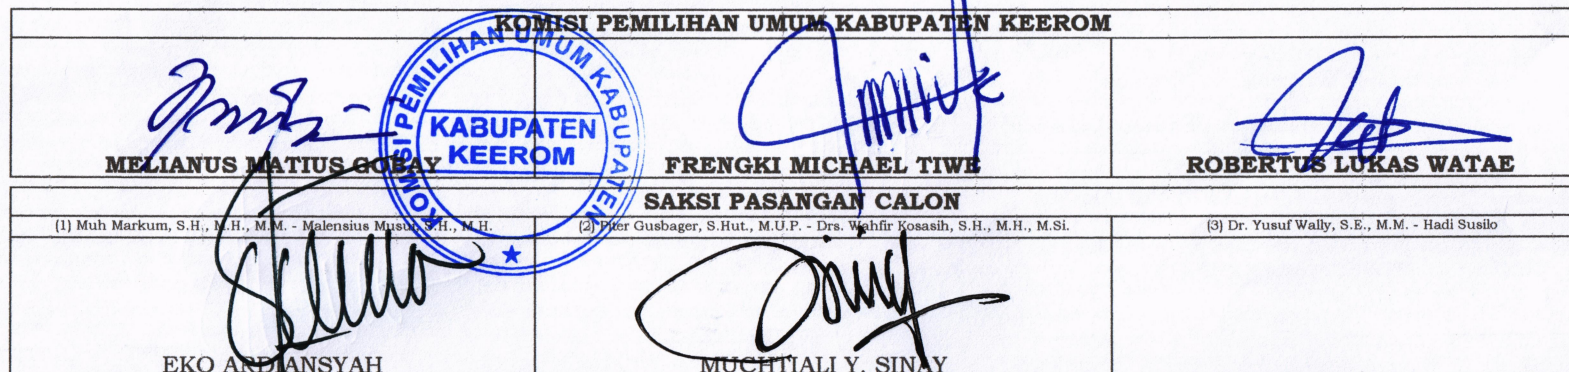 KOMISI PEMILIHAN UMUM KABUPATEN KEEROM
KOMISI PEMILIHAN UMUM KABUPATEN
KABUPATEN
KEEROM
MELIANUS MATIUS GOBAY
FRENGKI MICHAEL TIWE
ROBERTUS LUKAS WATAE
SAKSI PASANGAN CALON
(1) Muh Markum, S.H., M.H., M.M. - Malensius Musui, S.H., M.H.
(2) Piter Gusbager, S.Hut., M.U.P. - Drs. Wahfir Kosasih, S.H., M.H., M.Si.
(3) Dr. Yusuf Wally, S.E., M.M. - Hadi Susilo
EKO ARDIANSYAH
MUCHTIALI Y. SINAY